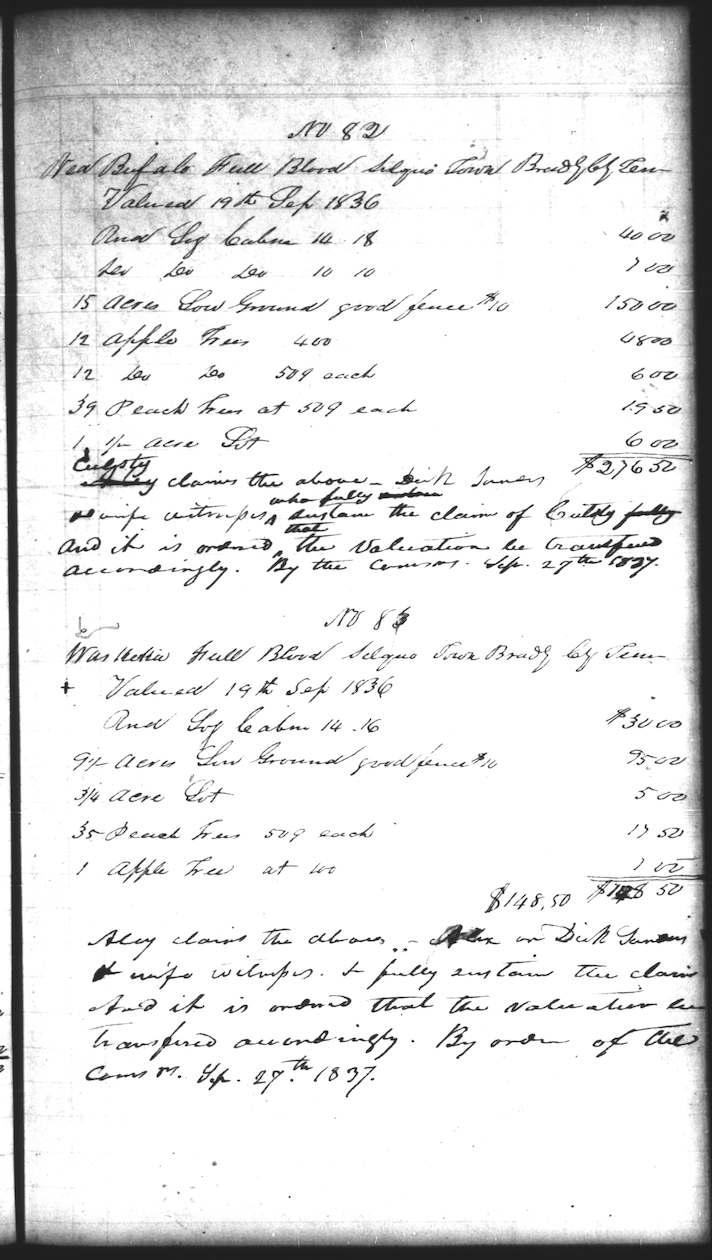 No 82
Ned Bufalo Full Blood Selquo Town Bradly Cty Ten
Valued 19th Sep 1836
Rnd Log Cabin 14 . 18 4000
Do Do Do 10 10 700
15 Acres Low Ground good fence $10 15000
12 Apple Trees 400 4800
12 Do Do 50¢ each 600
39 Peach Trees at 50¢ each 1950
1 1/2 acre Lot 600
$27650
claims the above - Dick
& wife witnesses who fully sustain the claim of
And it is ordered that the Valuation be transfered
accordingly. By the Comsrs. Sep. 27th 1837.
No 83
Full Blood Selquo Town Bradly Cty Ten
+ Valued 19th Sep 1836
Rnd Log Cabin 14 . 16 $3000
9 1/2 Acres Low Ground good fence $10 9500
3/4 Acre Lot 500
35 Peach Trees 50¢ each 1750
1 Apple Tree at 100 100
$148.50 $148 50
Aley claims the above. - Dick
& wife witnesses. & fully sustain the claim
And it is ordered that the valuation be
transfered accordingly. By order of the
Comsrs. Sep. 27th. 1837.